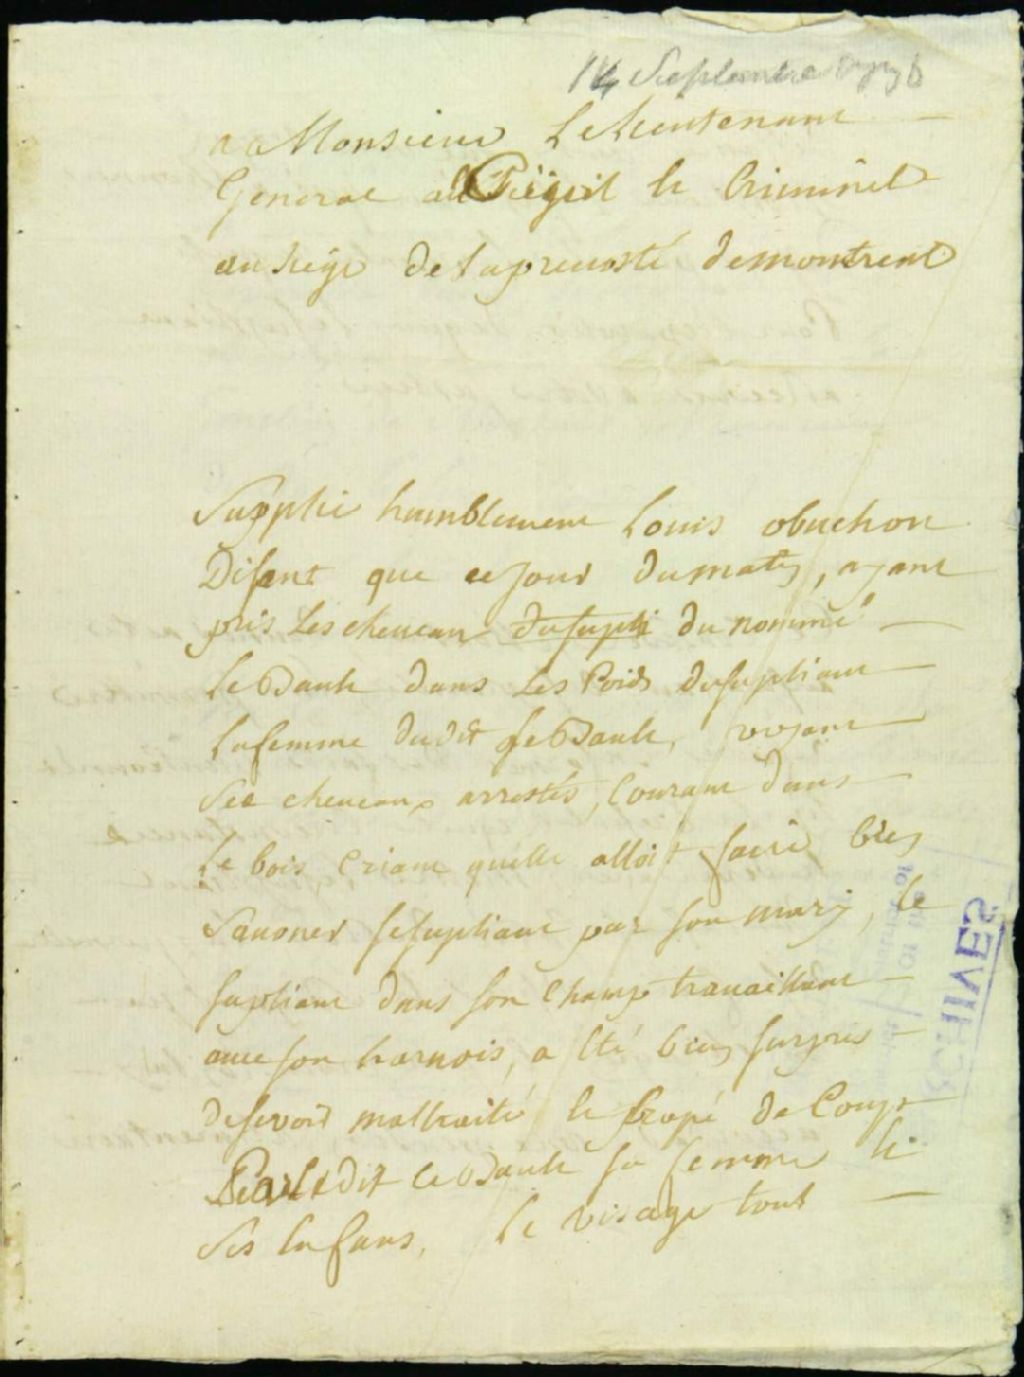 14 Septembre
a Monsieur Le Lieutenant
General Civil le Criminel
au siege de la prevosté de montreal
Supplie humblement Louis obuchon
Disant que ce jour du matin, ayant
pris Les chevaux du supli du nommé
le Dault dans Les Poids du supliant
la femme du dit le Dault, voyant
ses chevaux arrestés, Courant dans
le bois Criant quelle alloit faire bien
sauoner le supliant par son mary, le
supliant dans son Champ trauaillant
avec son harnois, a Eté bien surpris
de se voir maltraité le frapé de Coups
Par le dit le Dault sa femme et
ses Enfans, le visage tout
ARCHIVES